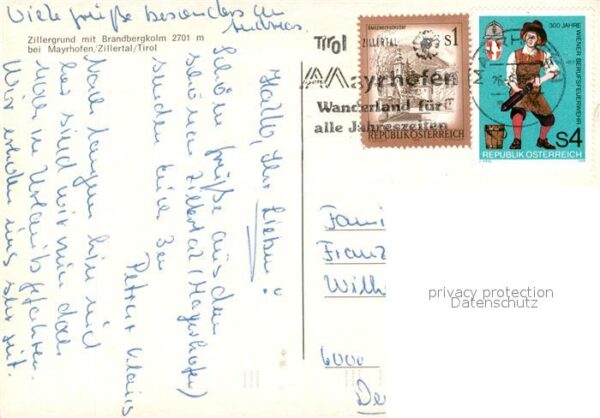 Viele Grüße besonders an
Andreas
Zillergrund mit Brandbergkolm 2701 m
bei Mayrhofen/Zillertal/Tirol
Hallo, Ihr Lieben!
Schöne Grüße aus dem
schönen Zillertal (Mayrhofen)
senden Euch
Petra + Klaus
Nach langem hin und
her sind wir nun doch
noch in Urlaub gefahren.
Wir erholen uns sehr gut.
Tirol
Mayrhofen
Wanderland für
alle Jahreszeiten
ZILLERTAL
S1
REPUBLIK ÖSTERREICH
300 JAHRE
WIENER BERUFSFEUERWEHR
S4
REPUBLIK ÖSTERREICH
Fami
Franz
Wilh
6000
De
privacy protection
Datenschutz